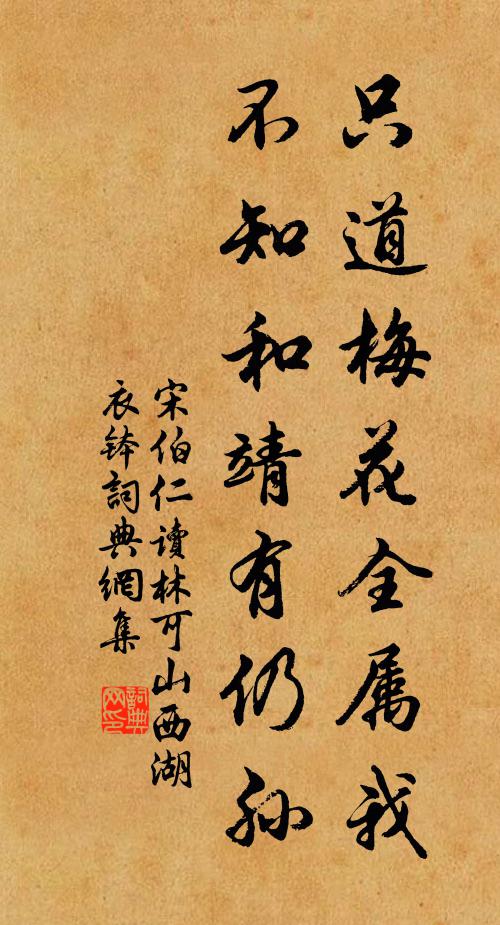 只道梅花全属我
不知和靖有仍孙
宋伯仁读林可山西湖
衣钵詞典網集
詞典
网印